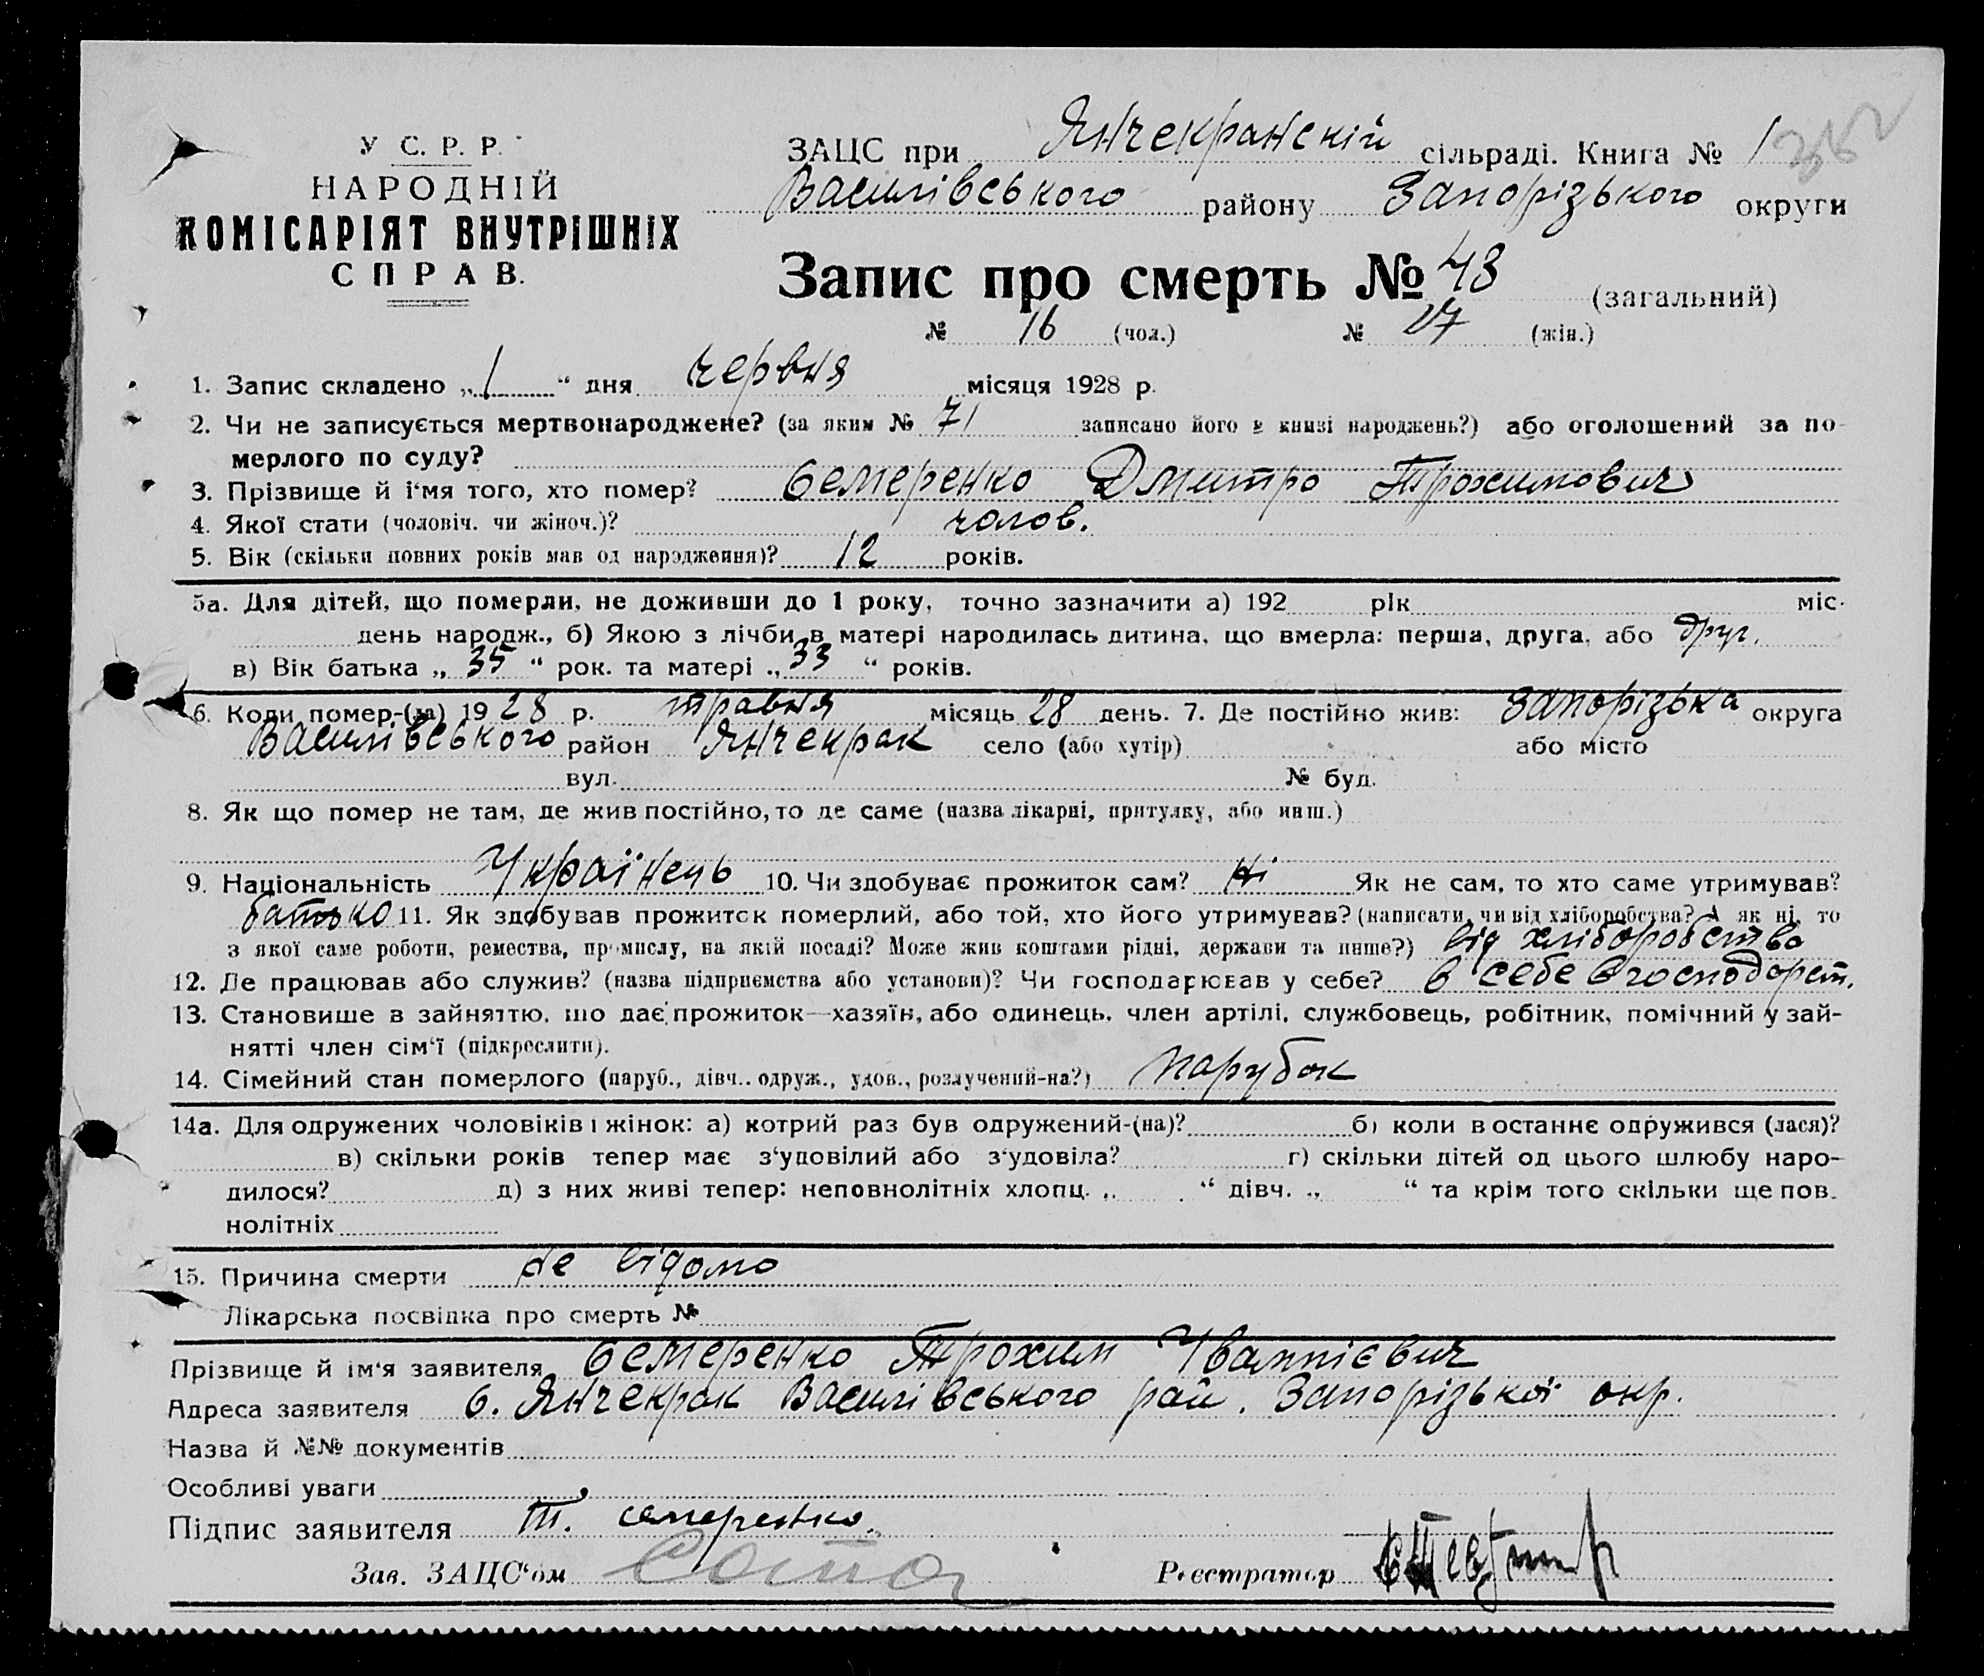 У С. Р. Р.
НАРОДНІЙ
КОМІСАРІЯТ ВНУТРІШНІХ
СПРАВ.
ЗАЦС при Янчекранскій сільраді. Книга № 1
362
Василівського району Запорізького округи
Запис про смерть № 43 (загальний)
№ 16 (чол.) № 27 (жін.)
1. Запис складено „1“ дня червня місяця 1928 р.
2. Чи не записується мертвонароджене? (за яким № 71 записано його в книзі народжень?) або оголошений за по-
мерлого по суду?
3. Прізвище й і‘мя того, хто помер? Семеренко Дмитро Трохимович
4. Якої стати (чоловіч. чи жіноч.)? чолов.
5. Вік (скільки повних років мав од народження)? 12 років.
5а. Для дітей, що померли, не доживши до 1 року, точно зазначити а) 192 рік міс.
день народж., б) Якою з лічби в матері народилась дитина, що вмерла: перша, друга, або друг.
в) Вік батька „35“ рок. та матері „33“ років.
6. Коли помер-(ла) 1928 р. травня місяць 28 день. 7. Де постійно жив: Запорізька округа
Василівського район Янчекрак село (або хутір) або місто
вул. № буд.
8. Як що помер не там, де жив постійно, то де саме (назва лікарні, притулку, або инш.)
9. Національність Українець 10. Чи здобуває прожиток сам? Ні Як не сам, то хто саме утримував?
батько 11. Як здобував прожиток померлий, або той, хто його утримував? (написати, чи від хліборобства? А як ні, то
з якої саме роботи, ремества, промислу, на якій посаді? Може жив коштами рідні, держави та инше?) від хліборобства
12. Де працював або служив? (назва підприємства або установи)? Чи господарював у себе? в себе в господарст.
13. Становище в зайняттю, що дає прожиток—хазяїн, або одинець, член артілі, службовець, робітник, помічний у зай-
нятті член сім‘ї (підкреслити).
14. Сімейний стан померлого (паруб., дівч.. одруж., удов., розлучений-на?) парубок
14а. Для одружених чоловіків і жінок: а) котрий раз був одружений-(на)? б) коли в останнє одружився (лася)?
в) скільки років тепер має з‘удовілий або з‘удовіла? г) скільки дітей од цього шлюбу наро-
дилося? д) з них живі тепер: неповнолітніх хлопц. „ “ дівч. „ “ та крім того скільки ще пов.
нолітніх
15. Причина смерти не відомо
Лікарська посвідка про смерть №
Прізвище й ім‘я заявителя Семеренко Трохим
Адреса заявителя с. Янчекрак Василівського рай. Запорізької окр.
Назва й №№ документів
Особливі уваги
Підпис заявителя Т. семеренко.
Зав. ЗАЦС‘ом
Реєстратор